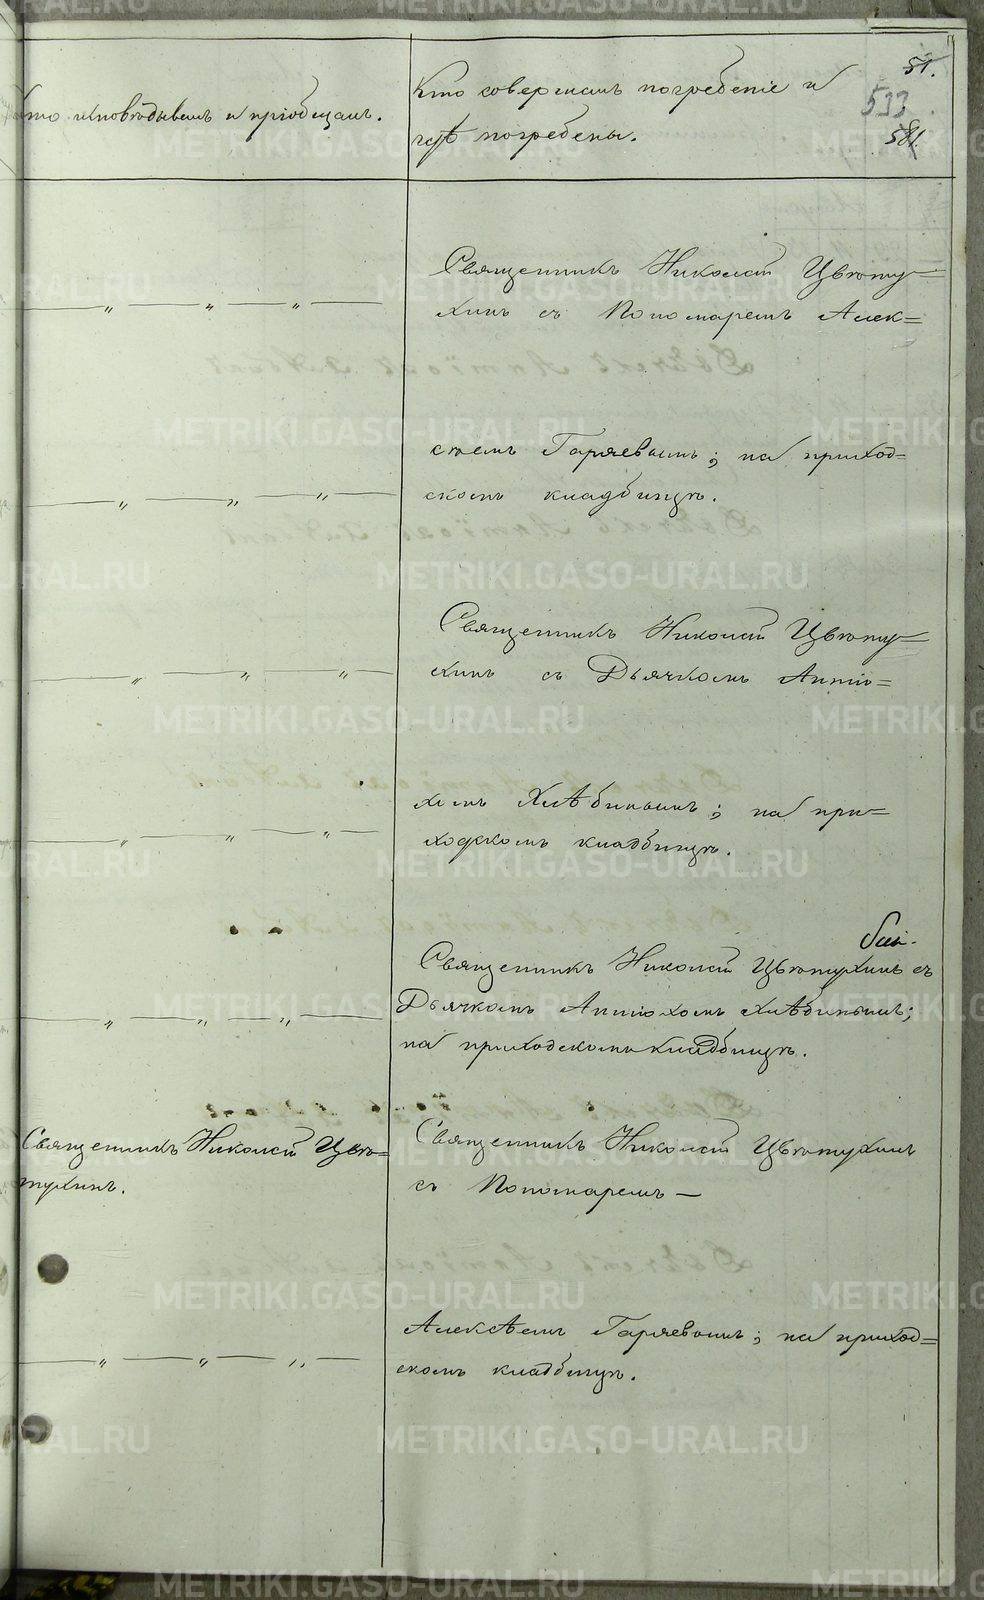 51.
533
581.
Кто исповѣдывалъ и пріобщалъ.
Кто совершалъ погребеніе и
гдѣ погребены.
Священникъ Николай Цвѣту=
хинъ съ Пономаремъ Алек=
сѣемъ Гаряевымъ; на приход=
скомъ кладбищѣ.
Священникъ Николай Цвѣту=
хинъ съ Дьячкомъ Антіо=
хомъ Хлѣбинымъ; на при=
ходскомъ кладбищѣ.
Священникъ Николай Цвѣтухинъ съ
Дьячкомъ Антіохомъ Хлѣбинымъ;
на приходскомъ кладбищѣ.
Священникъ Николай Цвѣ=
тухинъ.
Священникъ Николай Цвѣтухинъ
съ Пономаремъ —
Алексѣемъ Гаряевымъ; на приход=
скомъ кладбищѣ.
METRIKI.GASO-URAL.RU